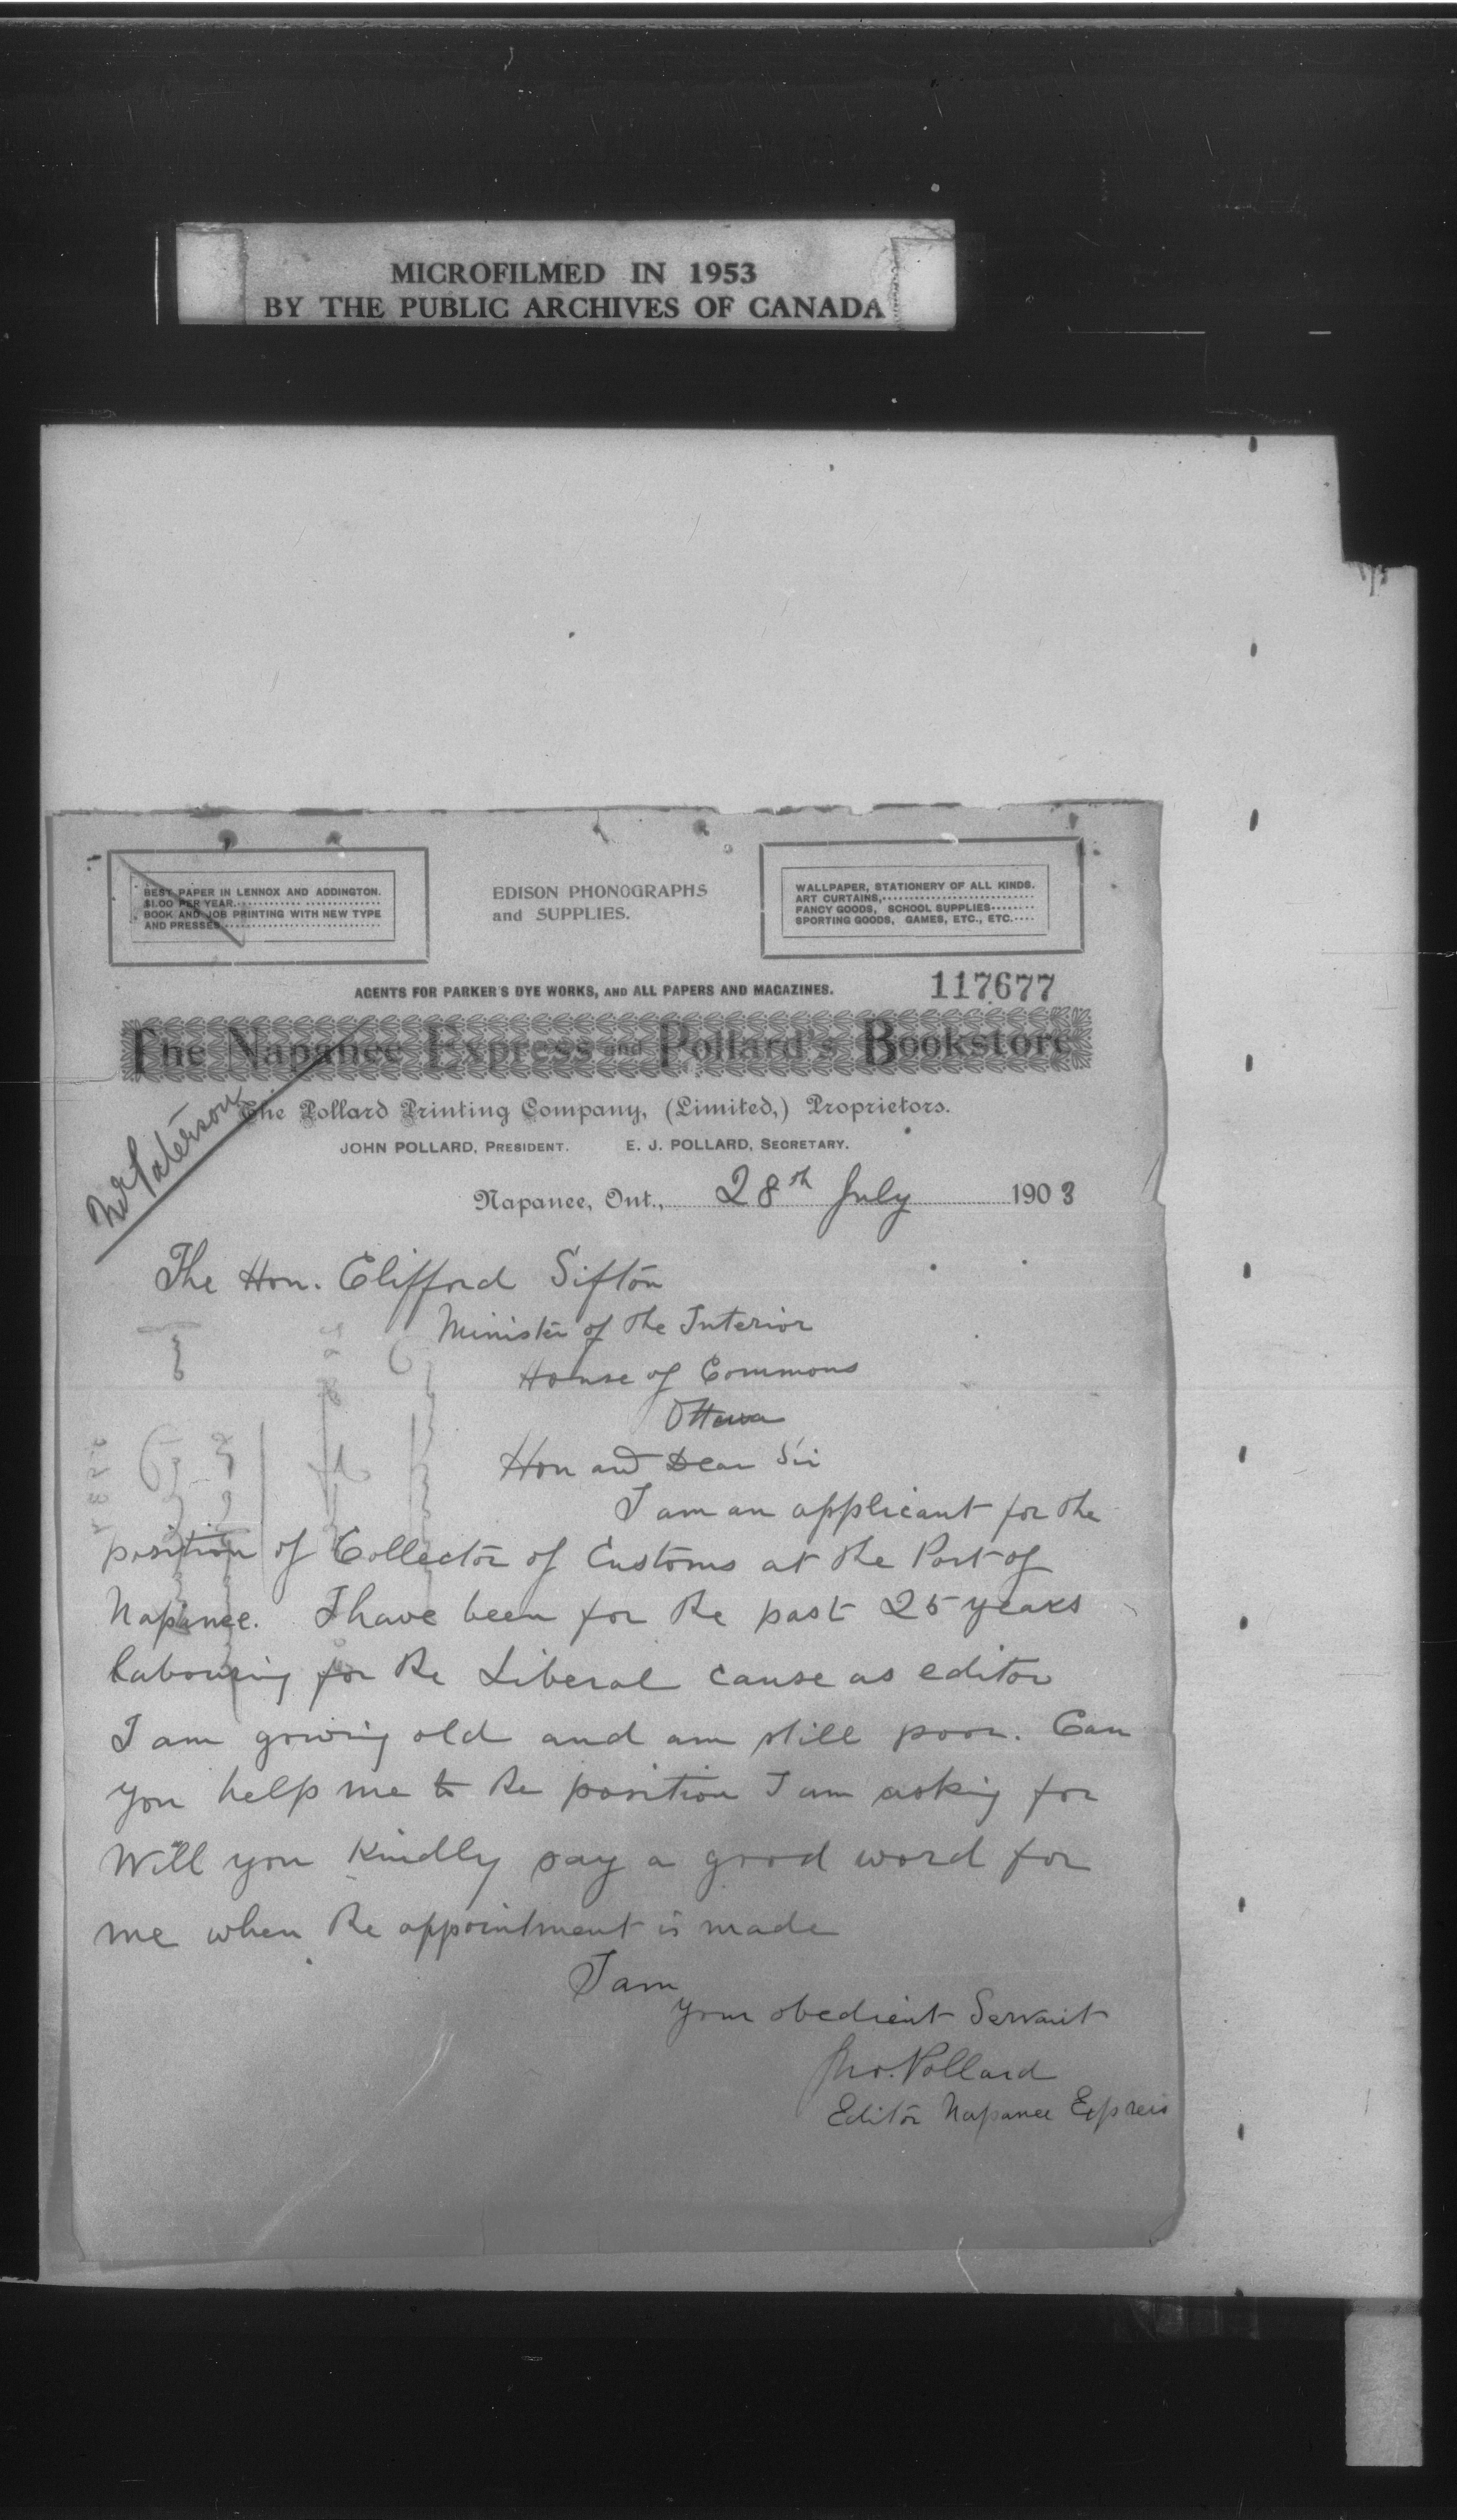 MICROFILMED IN 1953
BY THE PUBLIC ARCHIVES OF CANADA
BEST PAPER IN LENNOX AND ADDINGTON.
$1.00 PER YEAR.
BOOK AND JOB PRINTING WITH NEW TYPE
AND PRESSES
EDISON PHONOGRAPHS
and SUPPLIES.
WALLPAPER, STATIONERY OF ALL KINDS.
ART CURTAINS,
FANCY GOODS, SCHOOL SUPPLIES
SPORTING GOODS, GAMES, ETC., ETC.
AGENTS FOR PARKER'S DYE WORKS, AND ALL PAPERS AND MAGAZINES.
117677
The Napanee Express and Pollard's Bookstore
Mr Paterson
The Pollard Printing Company, (Limited,) Proprietors.
JOHN POLLARD, PRESIDENT. E. J. POLLARD, SECRETARY.
Napanee, Ont., 28th July 1903
The Hon. Clifford Sifton
Minister of the Interior
House of Commons
Ottawa
Hon and Dear Sir
I am an applicant for the
position of Collector of Customs at the Port of
Napanee. I have been for the past 25 years
labouring for the Liberal cause as editor
I am growing old and am still poor. Can
you help me to the position I am asking for
Will you kindly say a good word for
me when the appointment is made
I am
your obedient Servant
Jno. Pollard
Editor Napanee Express